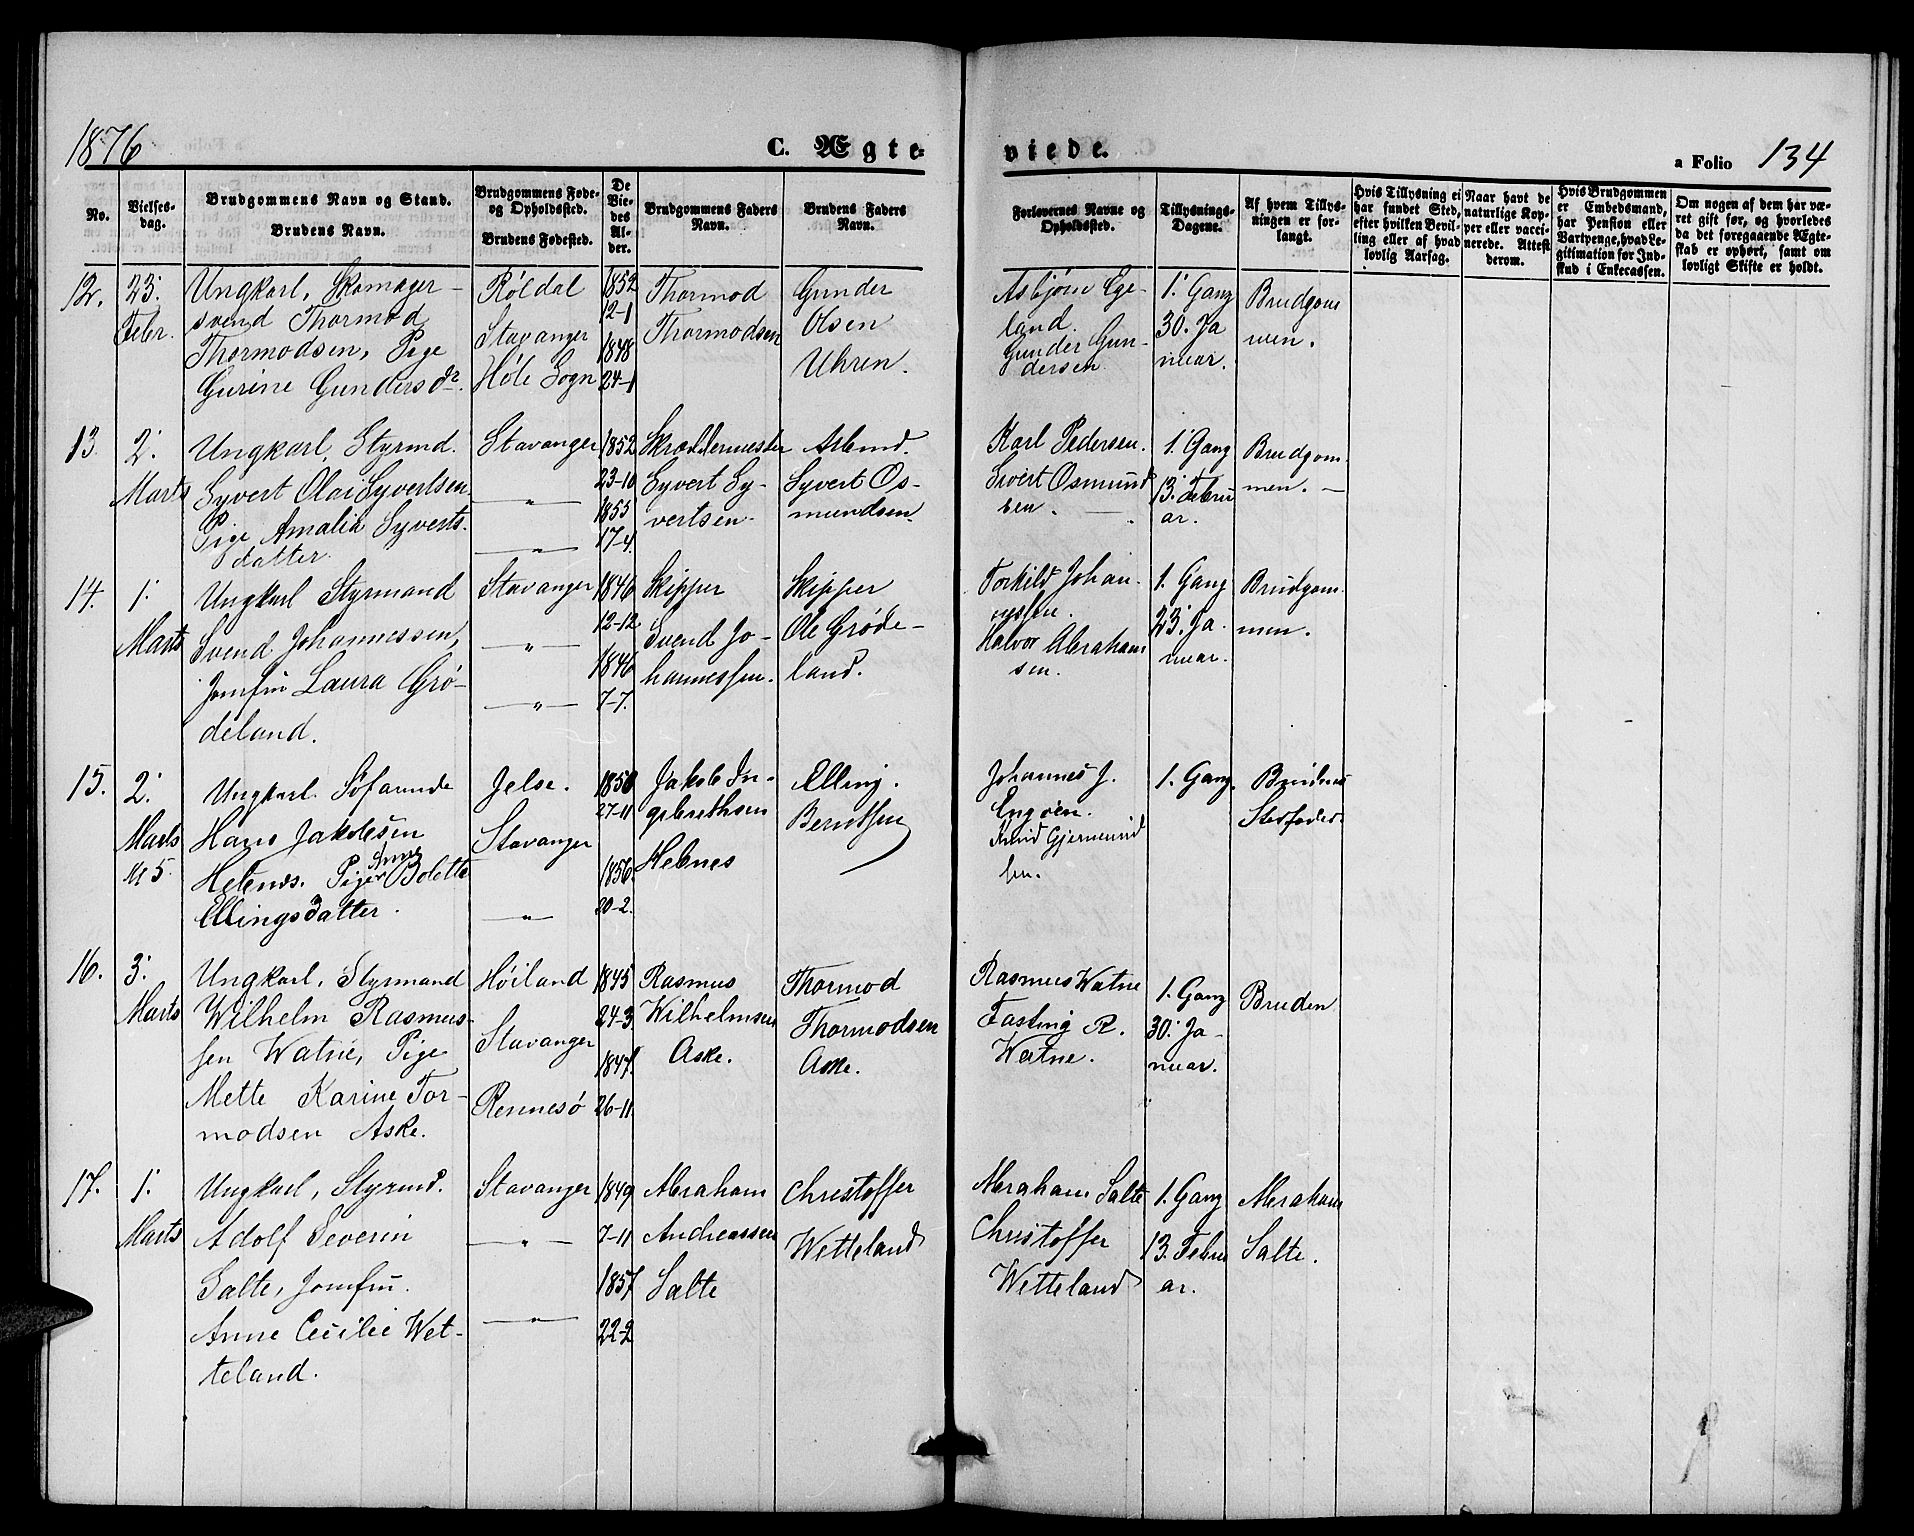 1876
C. Ægte-
viede.
a Folio 134
No.
Vielses-
dag.
Brudgommens Navn og Stand.
Brudens Navn.
Brudgommens Føde-
og Opholdssted.
Brudens Fødested.
De
Vie-
des
Al-
der.
Brudgommens Faders
Navn.
Brudens Faders
Navn.
Forlovernes Navne og
Opholdssted.
Tillysnings-
Dagene.
Af hvem Tillys-
ningen er for-
langt.
Hvis Tillysning ei
har fundet Sted,
efter hvilken Bevil-
ling eller af hvad
lovlig Aarsag.
Naar havt de
naturlige Kop-
per eller vacci-
nerede. Attest
derom.
Hvis Brudgommen
er Embedsmand,
har Pension eller
Vartpenge, hvad Le-
gitimation for Ind-
skud i Enkecassen.
Om nogen af dem har væ-
ret gift før, og hvorledes
da det foregaaende Ægte-
skab er ophørt, samt om
lovligt Skifte er holdt.
12.
23.
Febr.
Ungkarl, Skomager-
svend Thormod
Thormodsen, Pige
Gurine Gundersdr.
Røldal
Stavanger
Høle Sogn
1852
12-1
1848
24-1
Thormod
Thormodsen
Gunder
Olsen
Uhren.
Asbjørn Ege-
land.
Gunder Gun-
dersen.
1. Gang
30. Ja
nuar.
Brudgom
men.
13.
2.
Marts
Ungkarl, Styrmd.
Syvert Olai Syvertsen
Pige Amalia Syverts-
datter.
Stavanger
— " —
— " —
1852
23-10
1855
17-4
Skræddermester
Syvert Sy-
vertsen.
Arbmd.
Syvert Os-
mundsen.
Karl Pedersen.
Sivert Osmund
sen. —
1. Gang
13. Febru
ar.
Brudgom
men. —
14.
1.
Marts
Ungkarl Styrmand
Svend Johannessen,
Jomfru Laura Grø-
deland.
Stavanger
— " —
— " —
1846
12-12
1846
7-7.
Skipper
Svend Jo-
hannessen.
Skipper
Ole Grøde-
land.
Torkild Johan-
nessen.
Halvor Abraham
sen.
1. Gang
23. Ja-
nuar.
Brudgom
men.
15.
2.
Marts
M 5.
Ungkarl. Søfarende
Hans Jakobsen
Helenes. Pige Anne Bolette
Ellingsdatter.
Jelse.
Stavanger
— " —
1850
27-11
1856.
20-2.
Jakob In-
gebrethsen
Helenes
Elling.
Berntsen
Johannes J.
Engøen.
Knud Gjermund
sen.
1. Gang.
Brudens
Stedfader
16.
3.
Marts
Ungkarl, Styrmand
Wilhelm Rasmus-
sen Watne, Pige
Mette Karine Tor-
modsen Aske.
Høiland
Stavanger
Rennesø
1845
24-3
1847.
26-11
Rasmus
Wilhelmsen
Aske.
Thormod
Thormodsen
Aske.
Rasmus Watne
Fasting R.
Watne.
1. Gang
30. Ja-
nuar.
Bruden
17.
1.
Marts
Ungkarl, Styrmd.
Adolf Severin
Salte, Jomfru.
Anne Cecilie Wet-
teland.
Stavanger
— " —
— " —
1849
7-11
1857
22-2
Abraham
Andreassen
Salte
Christoffer
Wetteland
Abraham Salte
Christoffer
Wetteland
1. Gang
13. Febru
ar.
Abraham
Salte.